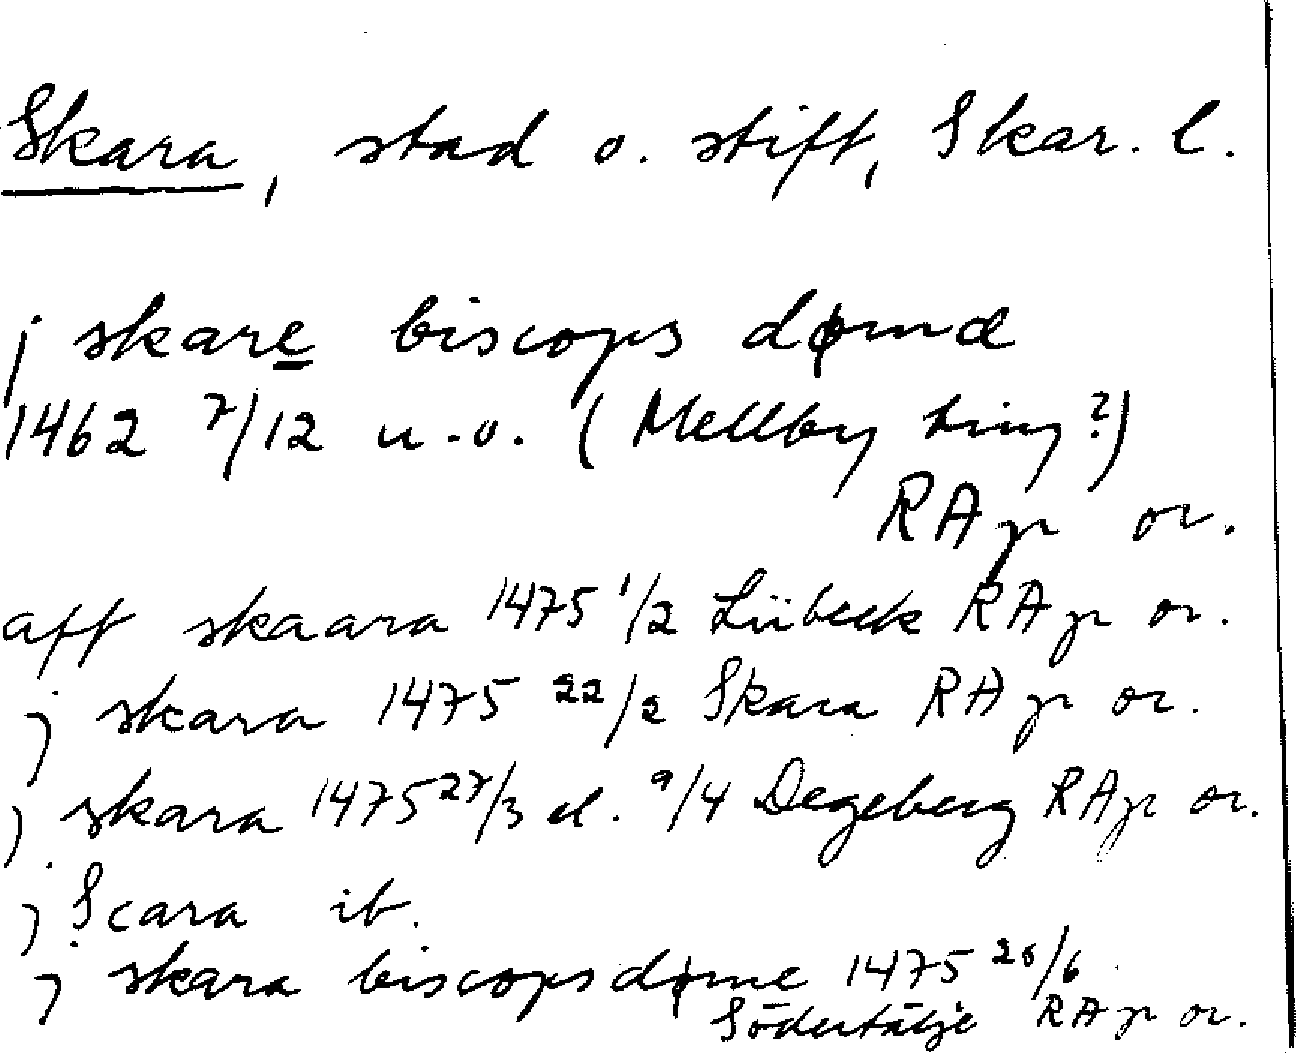 Skara, stad o. stift, Skar. l.
j skare biscops dømæ
1462 7/12 u.o. (Mellby ting?)
RAp or.
aff skaara 1475 1/2 Lübeck RAp or.
j skara 1475 22/2 Skara RAp or.
j skara 1475 27/3 el. 9/4 Degeberg RAp or.
j Scara ib.
j skara biscopsdøme 1475 26/6
Södertälje RAp or.